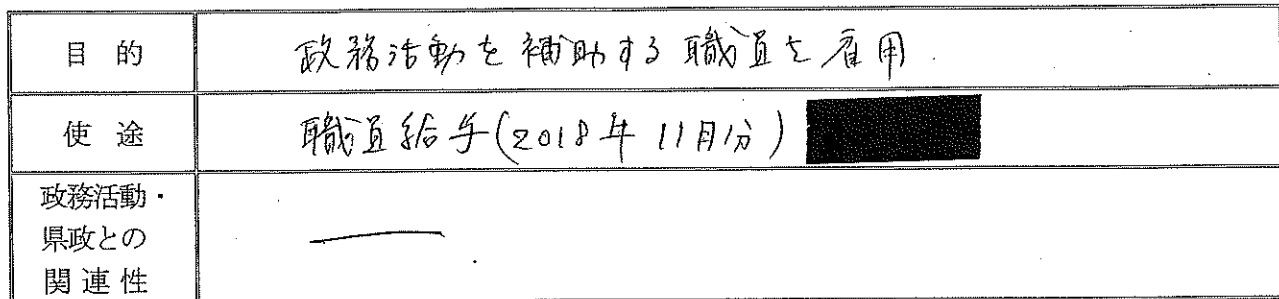 目的
政務活動を補助する職員を雇用
使途
職員給与(2018年11月分)
政務活動・
県政との
関連性
—